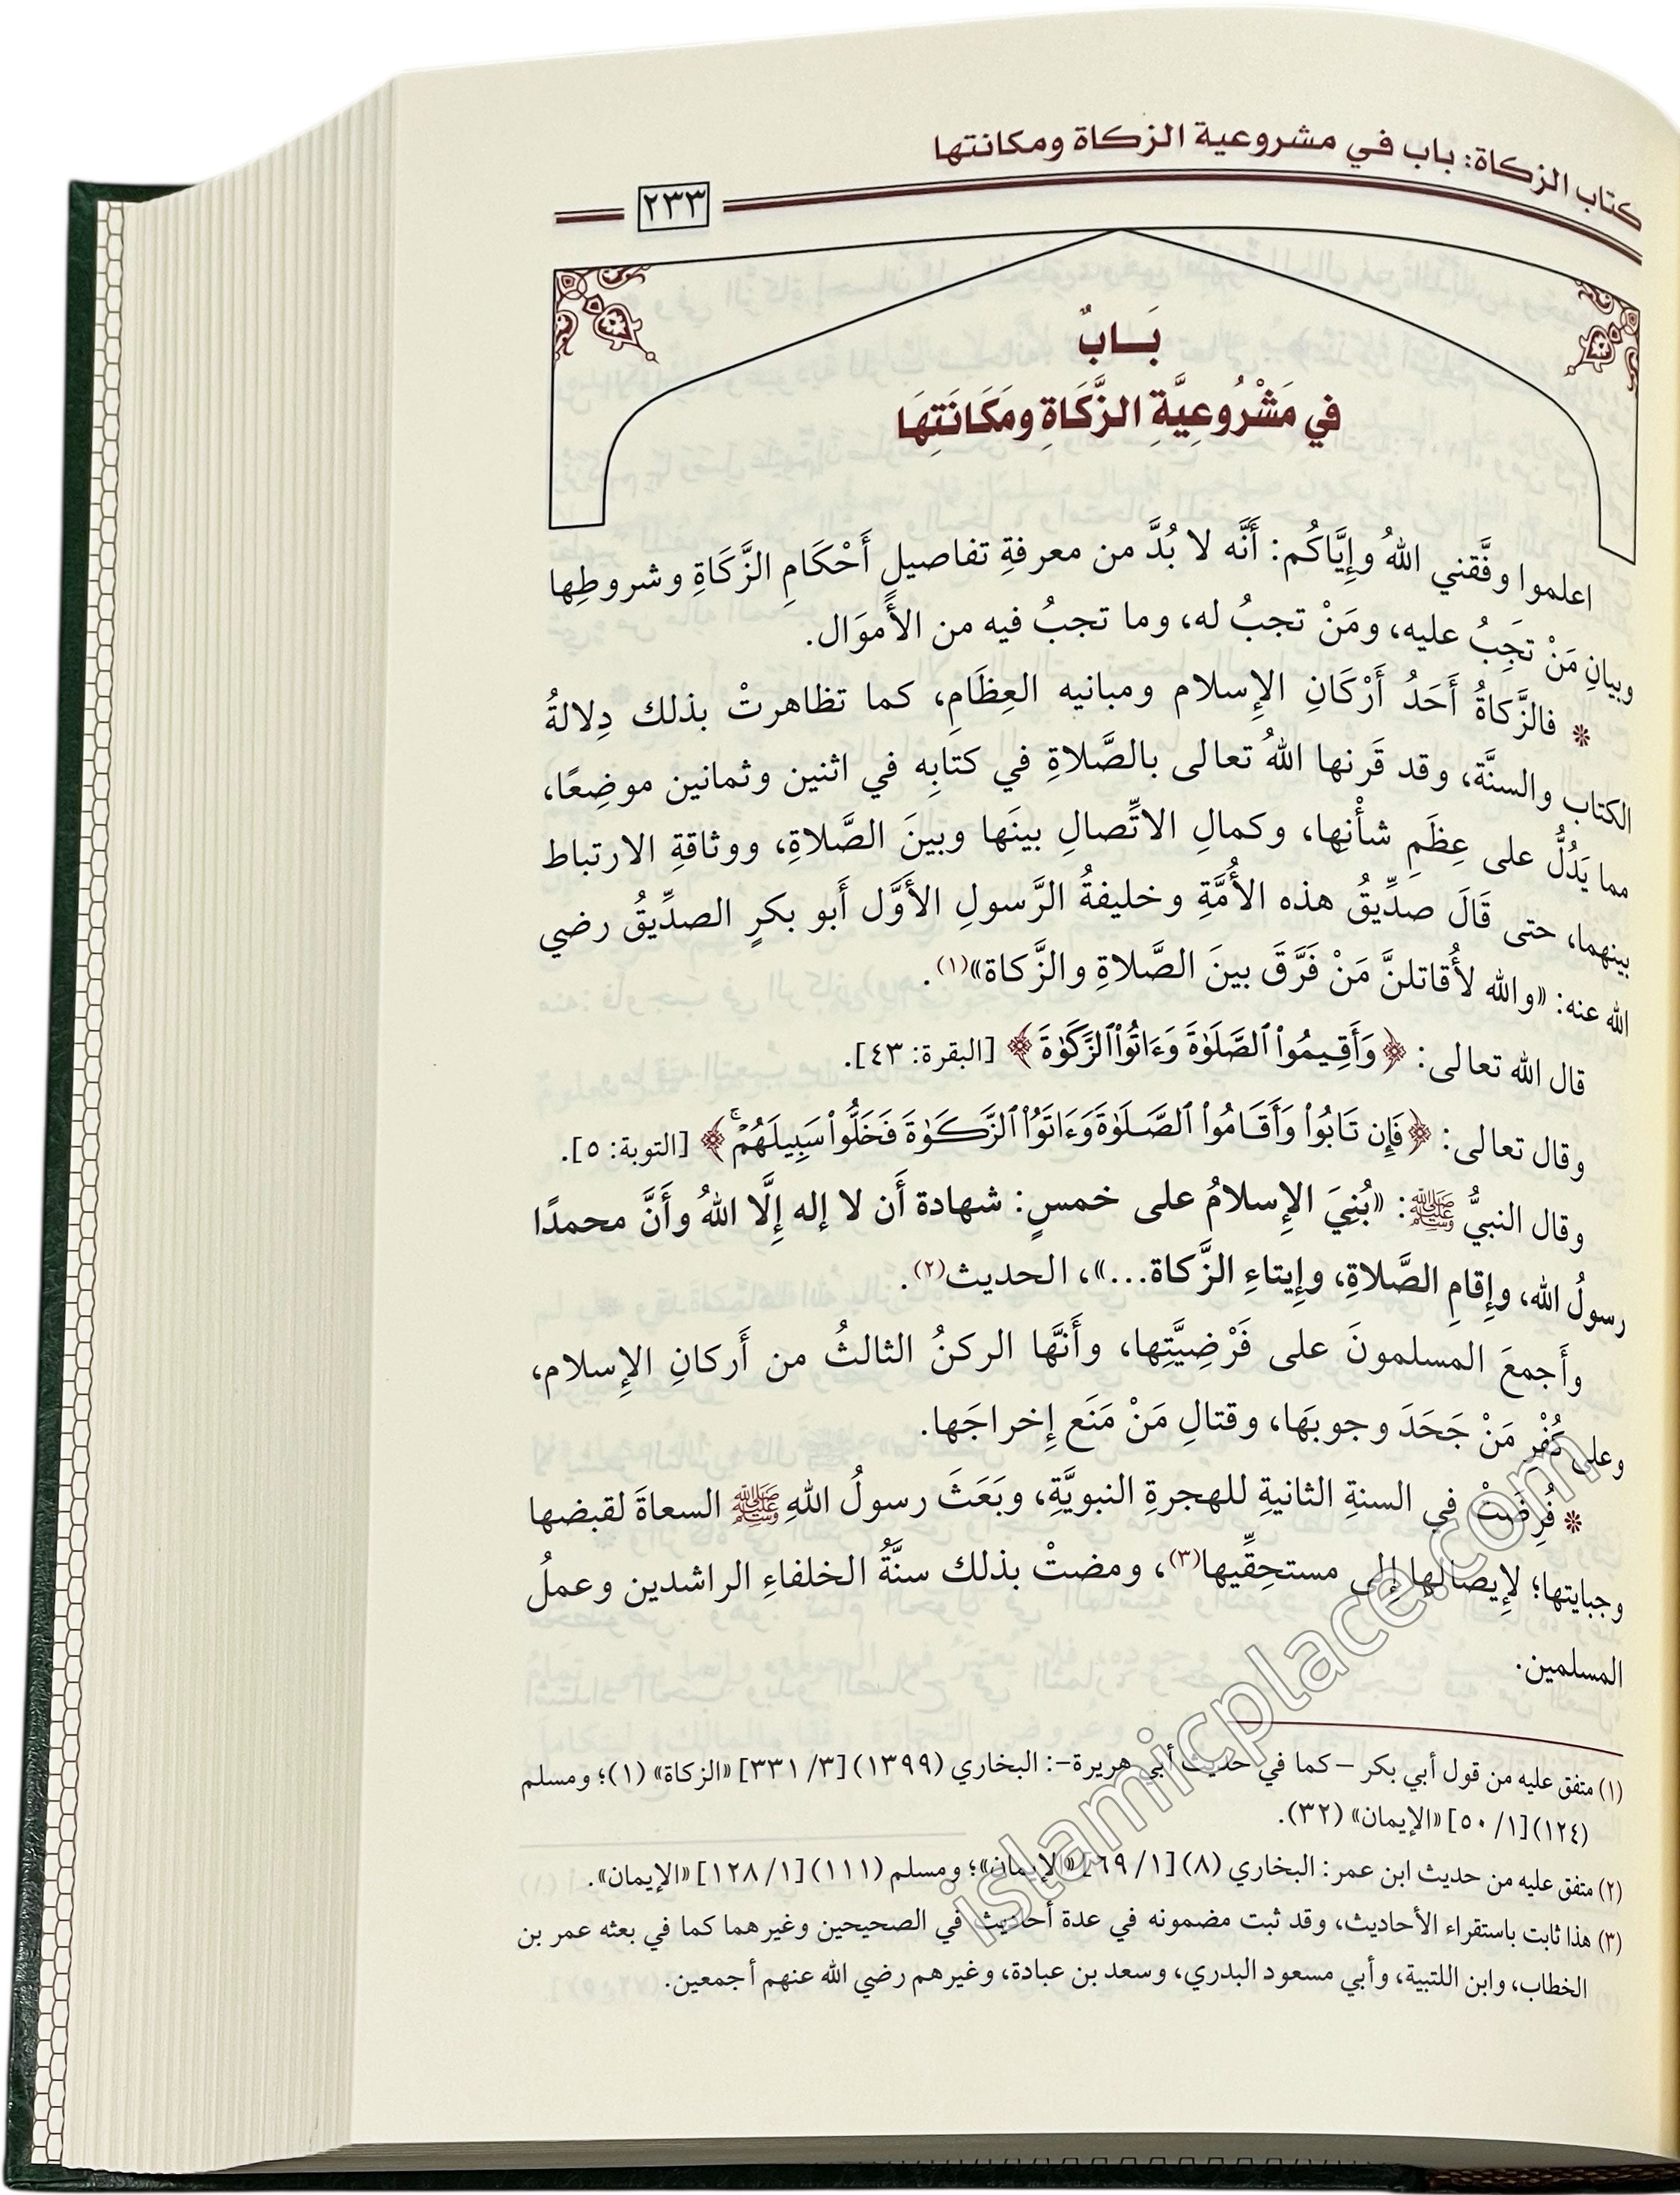 كتاب الزكاة: باب في مشروعية الزكاة ومكانتها
٢٣٣
بَـابٌ
في مَشْرُوعِيَّةِ الزَّكَاةِ ومَكَانَتِهَا
اعلموا وفَّقني اللهُ وإِيَّاكُم: أَنَّه لا بُدَّ من معرفةِ تفاصيلِ أَحْكَامِ الزَّكَاةِ وشروطِها
وبيانِ مَنْ تجَِبُ عليه، ومَنْ تجبُ له، وما تجبُ فيه من الأَموَال.
* فالزَّكاةُ أَحَدُ أَرْكَانِ الإِسلام ومبانيه العِظَامِ، كما تظاهرتْ بذلك دِلالةُ
الكتاب والسنَّة، وقد قَرنها اللهُ تعالى بالصَّلاةِ في كتابِه في اثنين وثمانين موضِعًا،
مما يَدُلُّ على عِظَمِ شأْنِها، وكمالِ الاتِّصالِ بينَها وبينَ الصَّلاةِ، ووثاقةِ الارتباط
بينهما، حتى قَالَ صِدِّيقُ هذه الأُمَّةِ وخليفةُ الرَّسولِ الأَوَّل أَبو بكرٍ الصدِّيقُ رضي
الله عنه: «والله لأُقاتلنَّ مَنْ فَرَّقَ بينَ الصَّلاةِ والزَّكاة»(١).
قال الله تعالى: ﴿وَأَقِيمُوا۟ ٱلصَّلَوٰةَ وَءَاتُوا۟ ٱلزَّكَوٰةَ﴾ [البقرة: ٤٣].
وقال تعالى: ﴿فَإِن تَابُوا۟ وَأَقَامُوا۟ ٱلصَّلَوٰةَ وَءَاتَوُا۟ ٱلزَّكَوٰةَ فَخَلُّوا۟ سَبِيلَهُمْ ۚ﴾ [التوبة: ٥].
وقال النبيُّ ﷺ: «بُنِيَ الإِسلامُ على خمسٍ: شهادة أَن لا إله إِلَّا اللهُ وأَنَّ محمدًا
رسولُ الله، وإِقامِ الصَّلاةِ، وإِيتاءِ الزَّكاة...»، الحديث(٢).
وأَجمعَ المسلمونَ على فَرْضِيَّتِها، وأَنَّها الركنُ الثالثُ من أَركانِ الإِسلام،
وعلى كُفْرِ مَنْ جَحَدَ وجوبهَا، وقتالِ مَنْ مَنَع إِخراجَها.
* فُرِضَتْ في السنةِ الثانيةِ للهجرةِ النبويَّةِ، وبَعَثَ رسولُ اللهِ ﷺ السعاةَ لقبضها
وجبايتها؛ لإِيصالها إلى مستحِقِّيها(٣)، ومضتْ بذلك سنَّةُ الخلفاءِ الراشدين وعملُ
المسلمين.
(١) متفق عليه من قول أبي بكر – كما في حديث أبي هريرة–: البخاري (١٣٩٩) [٣/ ٣٣١] «الزكاة» (١)؛ ومسلم
(١٢٤) [١/ ٥٠] «الإيمان» (٣٢).
(٢) متفق عليه من حديث ابن عمر: البخاري (٨) [١/ ٦٩] «الإيمان»؛ ومسلم (١١١) [١/ ١٢٨] «الإيمان».
(٣) هذا ثابت باستقراء الأحاديث، وقد ثبت مضمونه في عدة أحاديث في الصحيحين وغيرهما كما في بعثه عمر بن
الخطاب، وابن اللتبية، وأبي مسعود البدري، وسعد بن عبادة، وغيرهم رضي الله عنهم أجمعين.
islamicplace.com